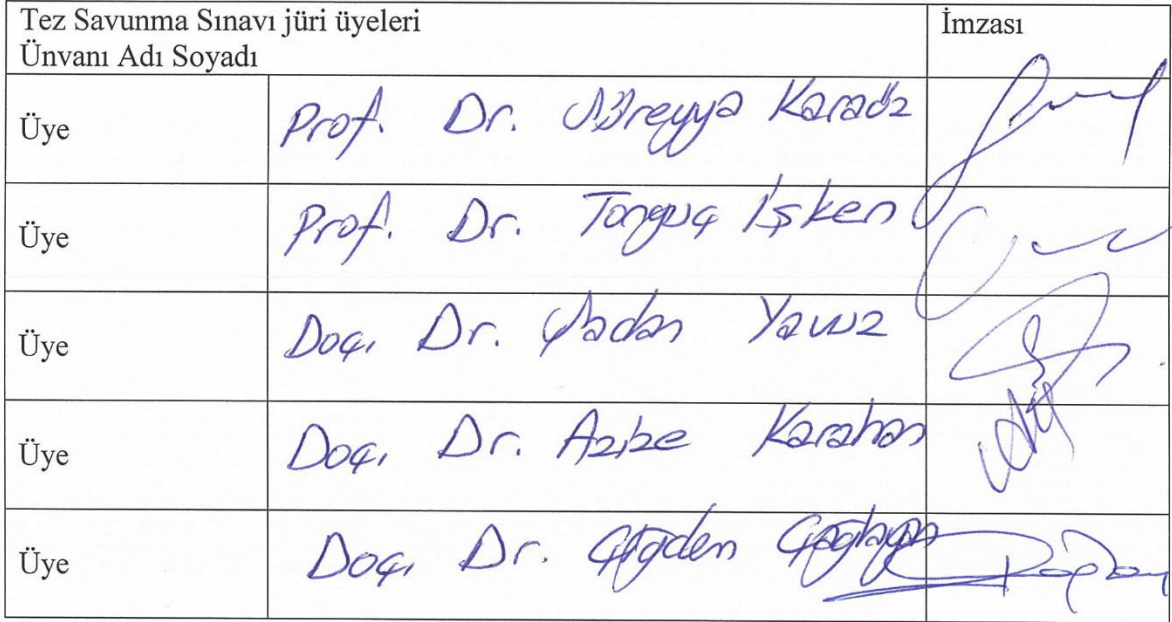 Tez Savunma Sınavı jüri üyeleri İmzası
Ünvanı Adı Soyadı
Üye Prof. Dr. Süreyya Karaöz
Üye Prof. Dr. Tonguç İşken
Üye Doç. Dr. Yavuz
Üye Doç. Dr. Azize Karahan
Üye Doç. Dr. Çiğdem Çağlayan